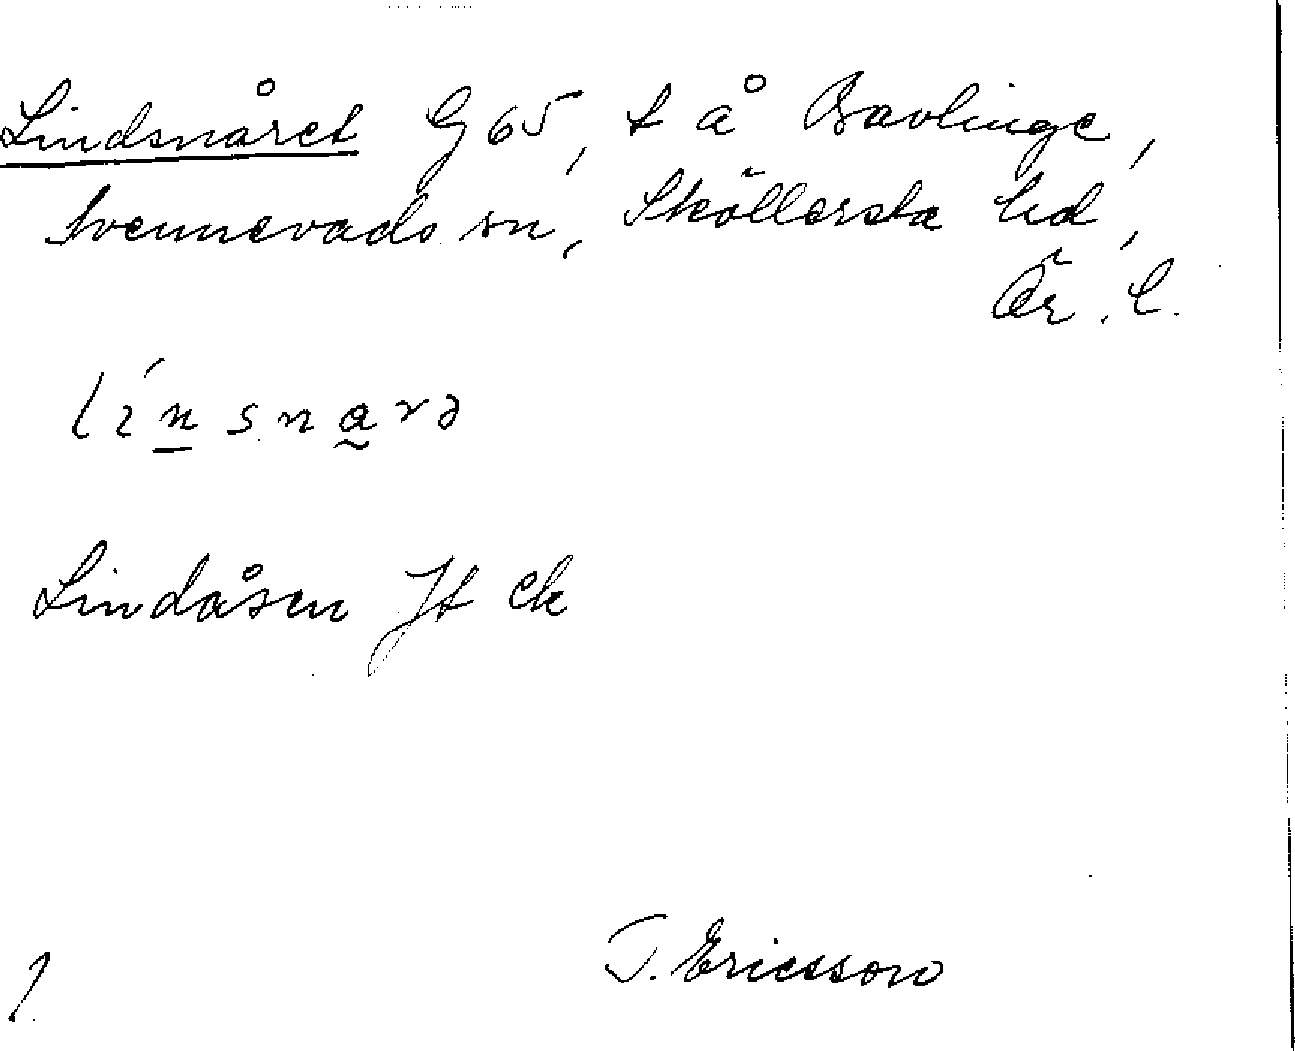 Lindsnåret G 65, t å Bavlinge,
Svennevads sn, Sköllersta hd,
Ör. l.
línsnarə
Lindåsen Jt ek
T. Ericsson